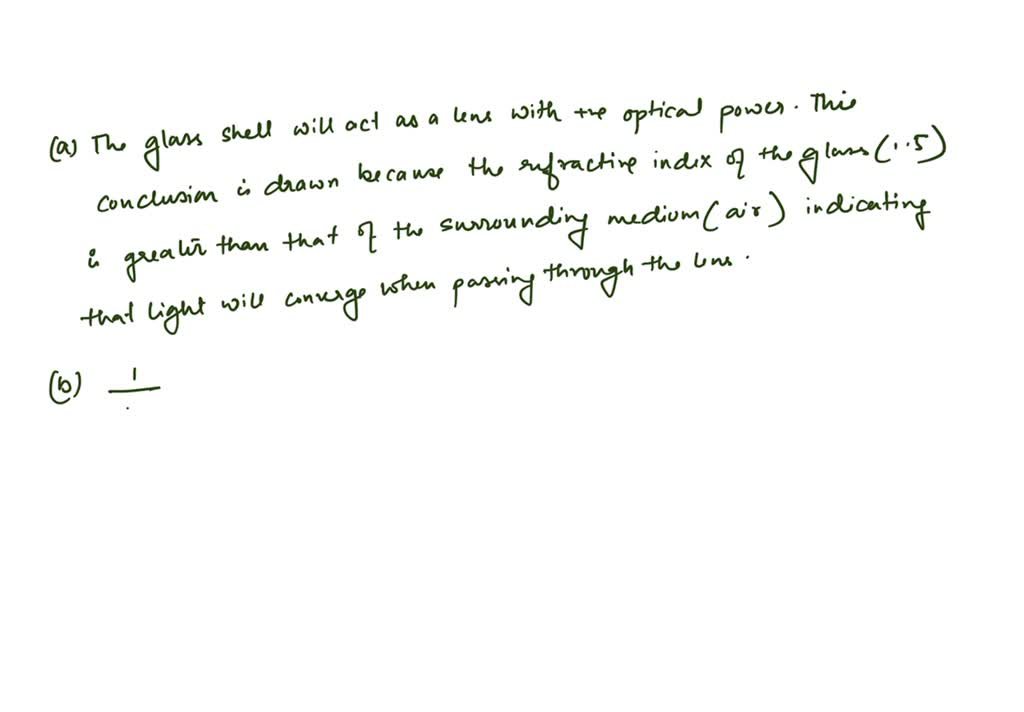 (a) The glass shell will act as a lens with +ve optical power. This
conclusion is drawn because the refractive index of the glass (1.5)
is greater than that of the surrounding medium (air) indicating
that light will converge when passing through the lens.
(b) 1